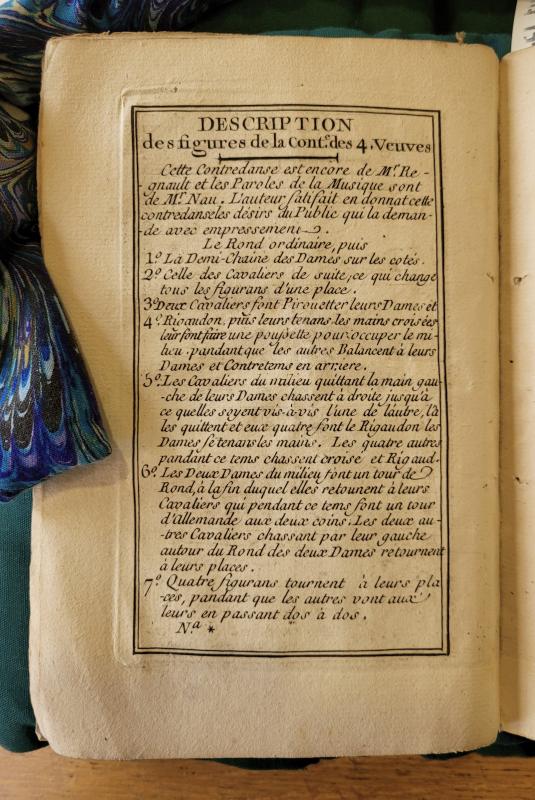 DESCRIPTION
des figures de la Cont.e des 4. Veuves
Cette Contredanse est encore de M.r Re-
gnault et les Paroles de la Musique sont
de M.r Nau. L'auteur satisfait en donnat cette
contredanse les désirs du Public qui la deman-
de avec empressement.
Le Rond ordinaire, puis
1.o La Demi-Chaine des Dames sur les cotés.
2.o Celle des Cavaliers de suite, ce qui change
tous les figurans d'une place.
3.o Deux Cavaliers font Pirouetter leurs Dames et
4.o Rigaudon, puis leurs tenans les mains croisées
leur font faire une poussette pour occuper le mi-
lieu. pandant que les autres Balancent à leurs
Dames et Contretems en arriere.
5.o Les Cavaliers du milieu quittant la main gau-
-che de leurs Dames chassent à droite jusqu'à
ce quelles soyent vis-à-vis l'une de l'autre, là
les quittent et eux quatre font le Rigaudon les
Dames se tenans les mains. Les quatre autres
pandant ce tems chassent croisé et Rigaud.
6.o Les Deux Dames du milieu font un tour de
Rond, à la fin duquel elles retounent à leurs
Cavaliers qui pendant ce tems font un tour
d'Allemande aux deux coins. Les deux au-
-tres Cavaliers chassant par leur gauche
autour du Rond des deux Dames retournent
à leurs places.
7.o Quatre figurans tournent à leurs pla
-ces, pandant que les autres vont aux
leurs en passant dos à dos.
N.a *